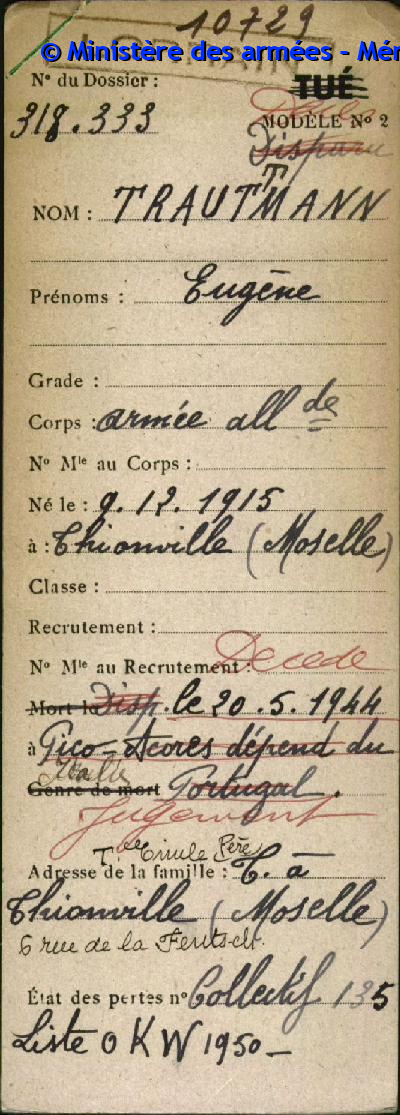 10729
© Ministère des armées - Mém
N° du Dossier :
TUÉ
Décédé
318.333
MODÈLE N° 2
Disparu
T
NOM : TRAUTMANN
Prénoms : Eugène
Grade :
Corps : armée all de
N° Mle au Corps :
Né le : 9.12.1915
à : Thionville (Moselle)
Classe :
Recrutement :
Décédé
N° Mle au Recrutement :
Mort le Disp. le 20.5.1944
à Pico-Acores dépend du
Italie
Genre de mort Portugal.
Jugement
T. Emile Père
Adresse de la famille : T. à
Thionville (Moselle)
6 rue de la Fentsch.
État des pertes n° Collectif 135
Liste OKW 1950 -